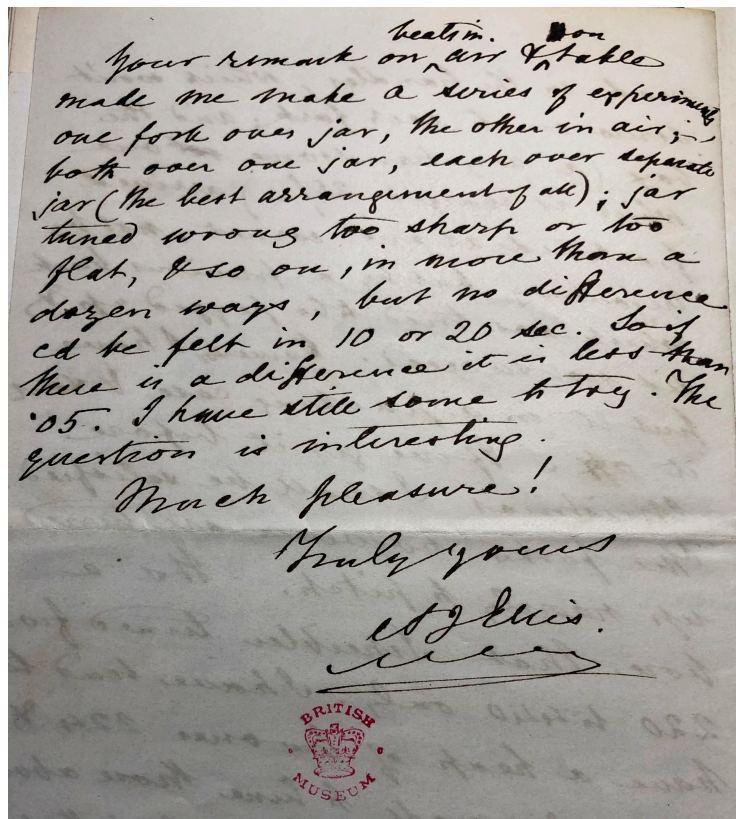 beats in. on
Your remark on air & table
made me make a series of experiments
one fork over jar, the other in air;
both over one jar, each over separate
jar (the best arrangement of all); jar
tuned wrong too sharp or too
flat, & so on, in more than a
dozen ways, but no difference
cd be felt in 10 or 20 sec. So if
there is a difference it is less than
·05. I have still some to try. The
question is interesting.
Much pleasure!
Truly yours
A J Ellis.
BRITISH
MUSEUM